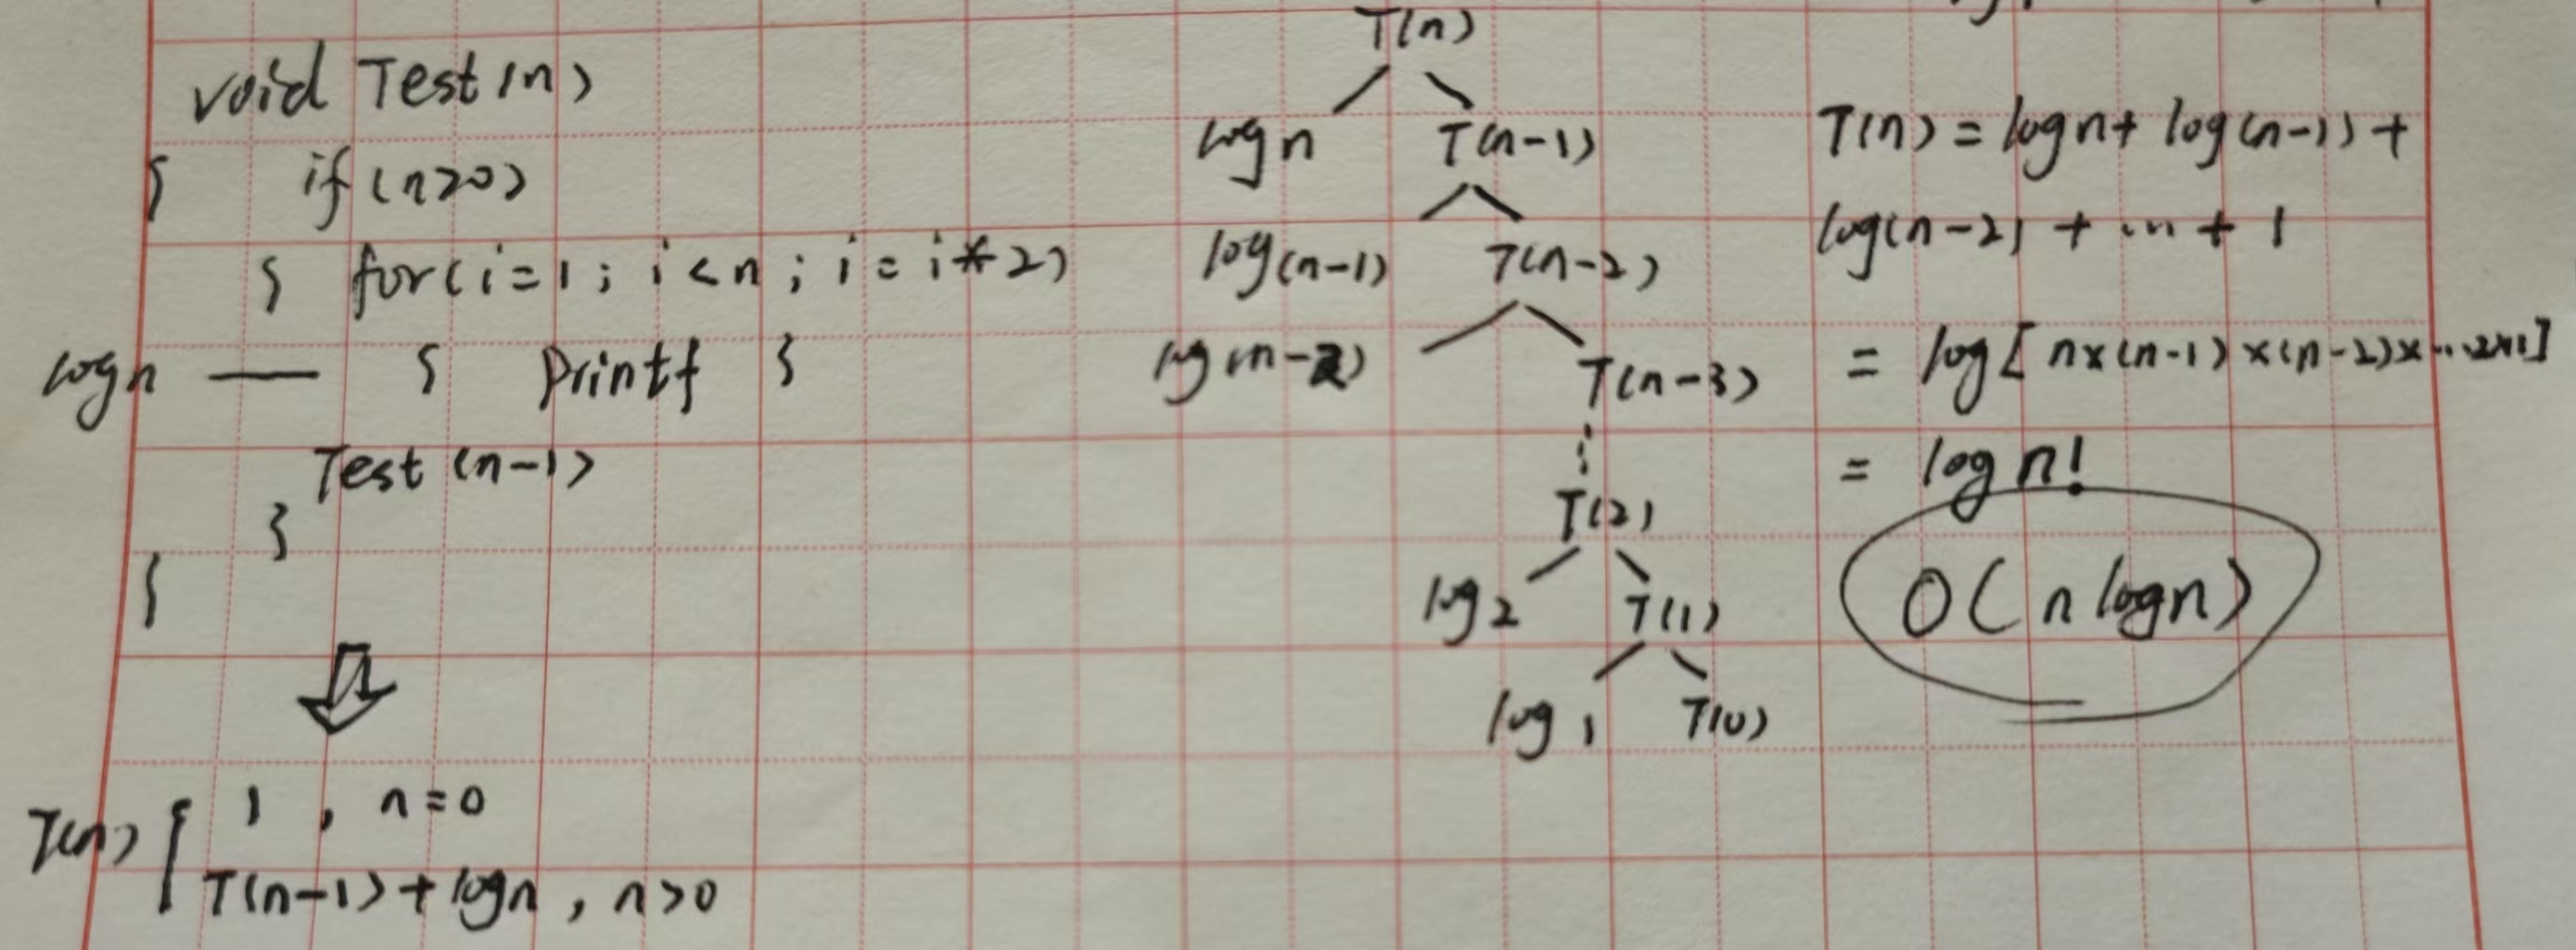 void Test(n)
{ if (n>0)
{ for(i=1; i<n; i=i*2)
logn — { Printf }
Test (n-1)
}
}
T(n) { 1 , n=0
T(n-1)+logn , n>0
T(n)
logn T(n-1)
log(n-1) T(n-2)
log(n-2) T(n-3)
⋮
T(2)
log2 T(1)
log1 T(0)
T(n) = logn+ log(n-1) +
log(n-2) + ... + 1
= log[n×(n-1)×(n-2)×...2×1]
= log n!
O(n logn)